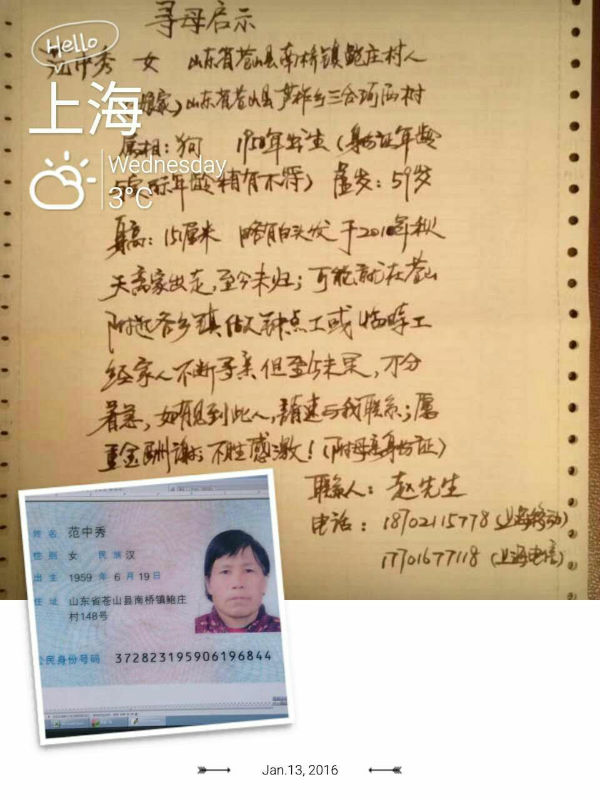 寻母启示
Hello
范中秀 女 山东省苍山县南桥镇鲍庄村人
上海
娘家)山东省苍山县芦柞乡三合 村
属相:狗 1958年出生(身份证年龄
Wednesday
年龄稍有不符) 虚岁:59岁
3°C
身高:151厘米 略有白头发 于2010年秋
天离家出走,至今未归;可能就在苍山
附近各乡镇做钟点工或临时工
经家人不断寻亲但至今未果,万分
着急,如有见到此人,请速与我联系;愿
重金酬谢;不胜感激!(附母亲身份证)
联系人:赵先生
电话:18702115778(上海移动)
17701677118(上海电信)
姓名 范中秀
性别 女 民族 汉
出生 1959 年 6 月 19 日
住址 山东省苍山县南桥镇鲍庄
村148号
公民身份号码 372823195906196844
Jan.13, 2016